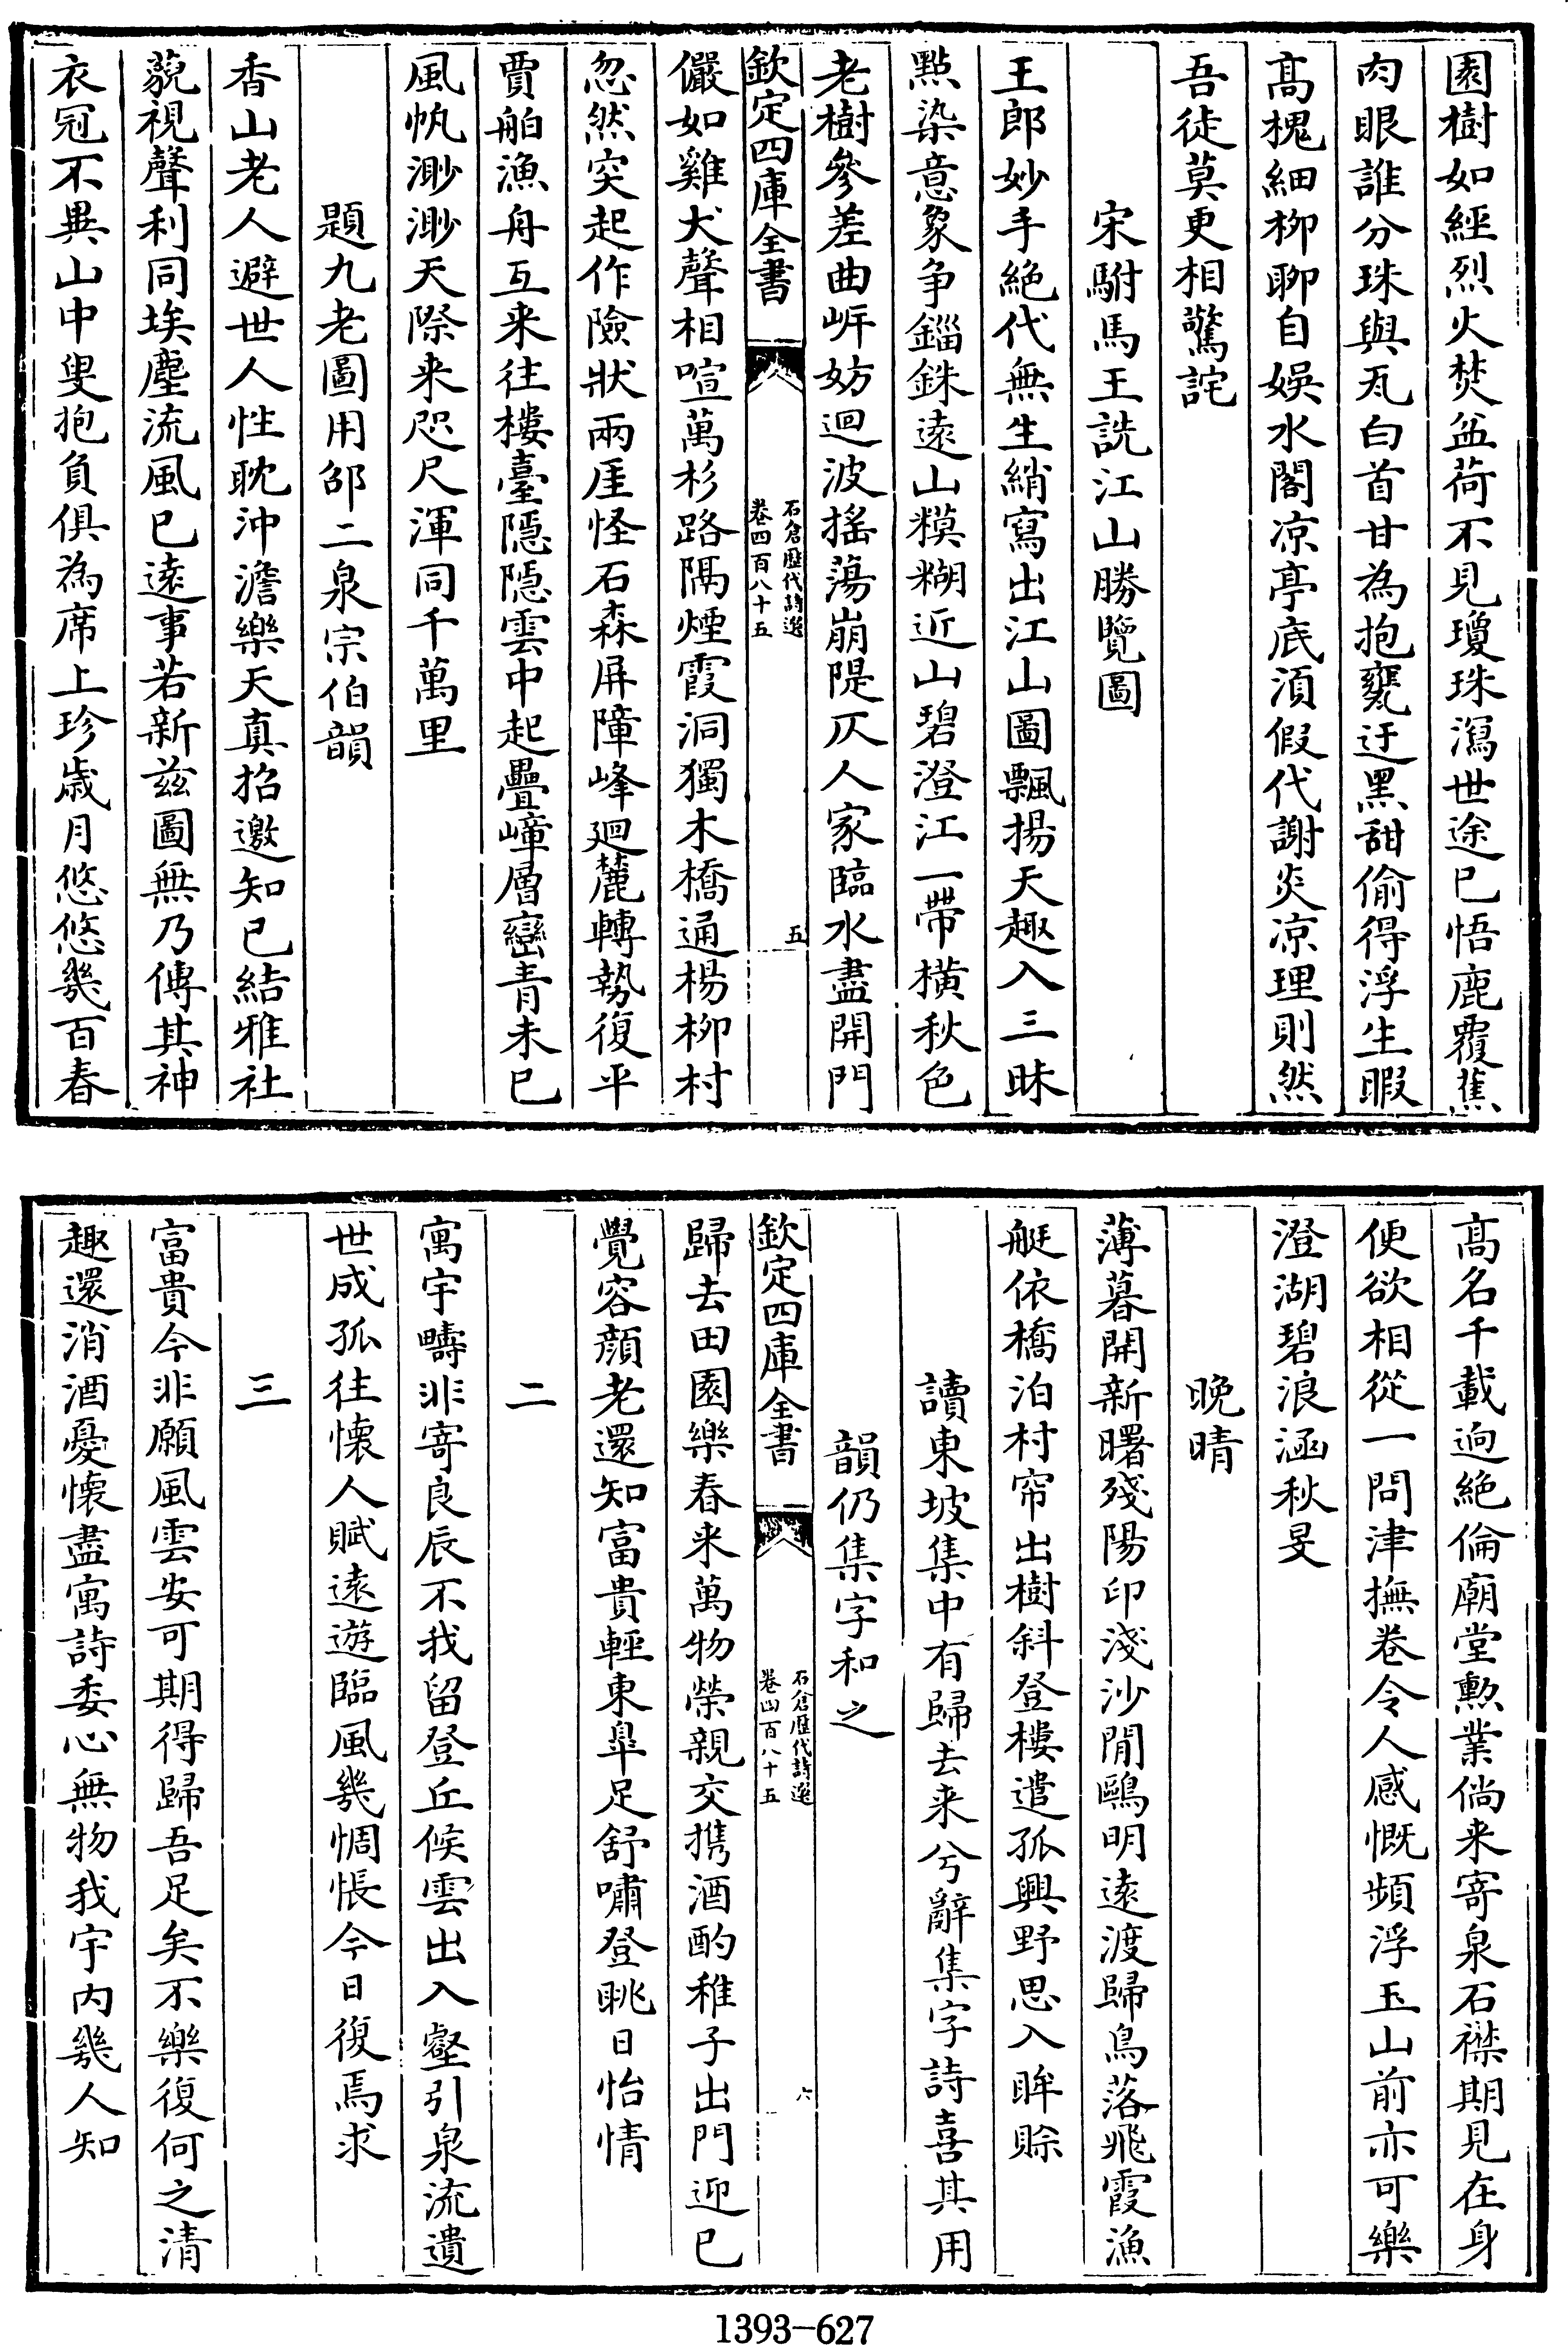 園樹如經烈火焚盆荷不見瓊珠瀉世途已悟鹿覆蕉
肉眼誰分珠與瓦白首甘為抱甕迂黑甜偷得浮生暇
髙槐細柳聊自娛水閣凉亭底湏假代謝炎凉理則然
吾徒莫更相驚詫
宋駙馬王詵江山勝覽圖
王郎妙手絶代無生綃寫出江山圖飄揚天趣入三昧
點染意象争錙銖遠山糢糊近山碧澄江一帶横秋色
老樹參差曲㟁妨迴波揺蕩崩隄仄人家臨水盡開門
欽定四庫全書
石倉歴代詩選
卷四百八十五
五
儼如雞犬聲相喧萬杉路隔煙霞洞獨木橋通楊柳村
忽然突起作險狀兩厓怪石森屏障峰廻麓轉勢復平
賈舶漁舟互来往樓臺隱隱雲中起疊嶂層巒青未已
風帆渺渺天際来咫尺渾同千萬里
題九老圖用邵二泉宗伯韻
香山老人避世人性耽沖澹樂天真招邀知已結雅社
藐視聲利同埃塵流風已遠事若新兹圖無乃傳其神
衣冠不異山中叟抱負俱為席上珍歲月悠悠幾百春
髙名千載逈絶倫廟堂勲業倘来寄泉石襟期見在身
便欲相從一問津撫卷令人感慨頻浮玉山前亦可樂
澄湖碧浪涵秋旻
晚晴
薄暮開新曙殘陽印淺沙閒鷗明遠渡歸鳥落飛霞漁
艇依橋泊村帘出樹斜登樓遣孤興野思入眸賒
讀東坡集中有歸去来兮辭集字詩喜其用
韻仍集字和之
欽定四庫全書
石倉歴代詩選
卷四百八十五
六
歸去田園樂春来萬物榮親交携酒酌稚子出門迎已
覺容顔老還知富貴輕東臯足舒嘯登眺日怡情
二
寓宇疇非寄良辰不我留登丘候雲出入壑引泉流遺
世成孤往懐人賦遠遊臨風幾惆悵今日復焉求
三
富貴今非願風雲安可期得歸吾足矣不樂復何之清
趣還消酒憂懐盡寓詩委心無物我宇内幾人知
1393-627